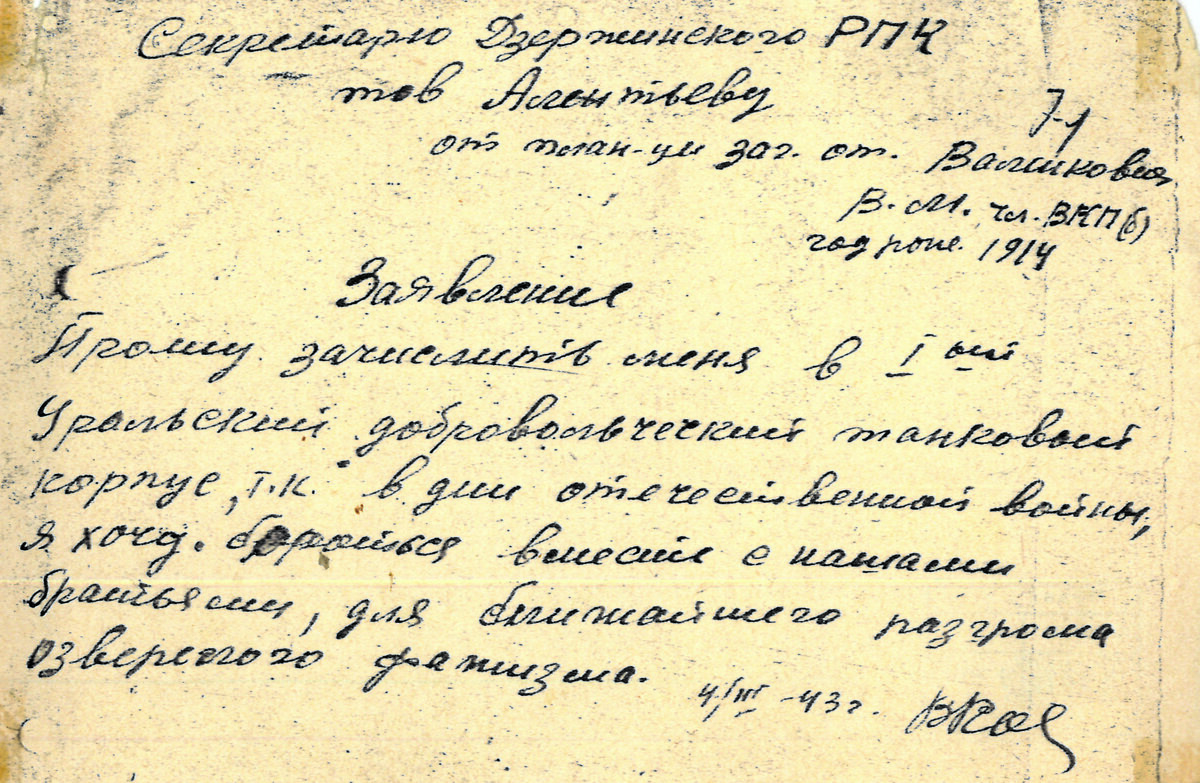 Секретарю Дзержинского РПК
тов Алентьеву
7-1
от план-ци заг. от.
В.М. чл. ВКП(б)
год рож. 1914
Заявление
Прошу зачислить меня в I ый
Уральский добровольческий танковый
корпус, т.к. в дни отечественной войны,
я хочу. бороться вместе с нашами
братьями, для ближайшего разгрома
озверелого фашизма.
4/III -43 г.